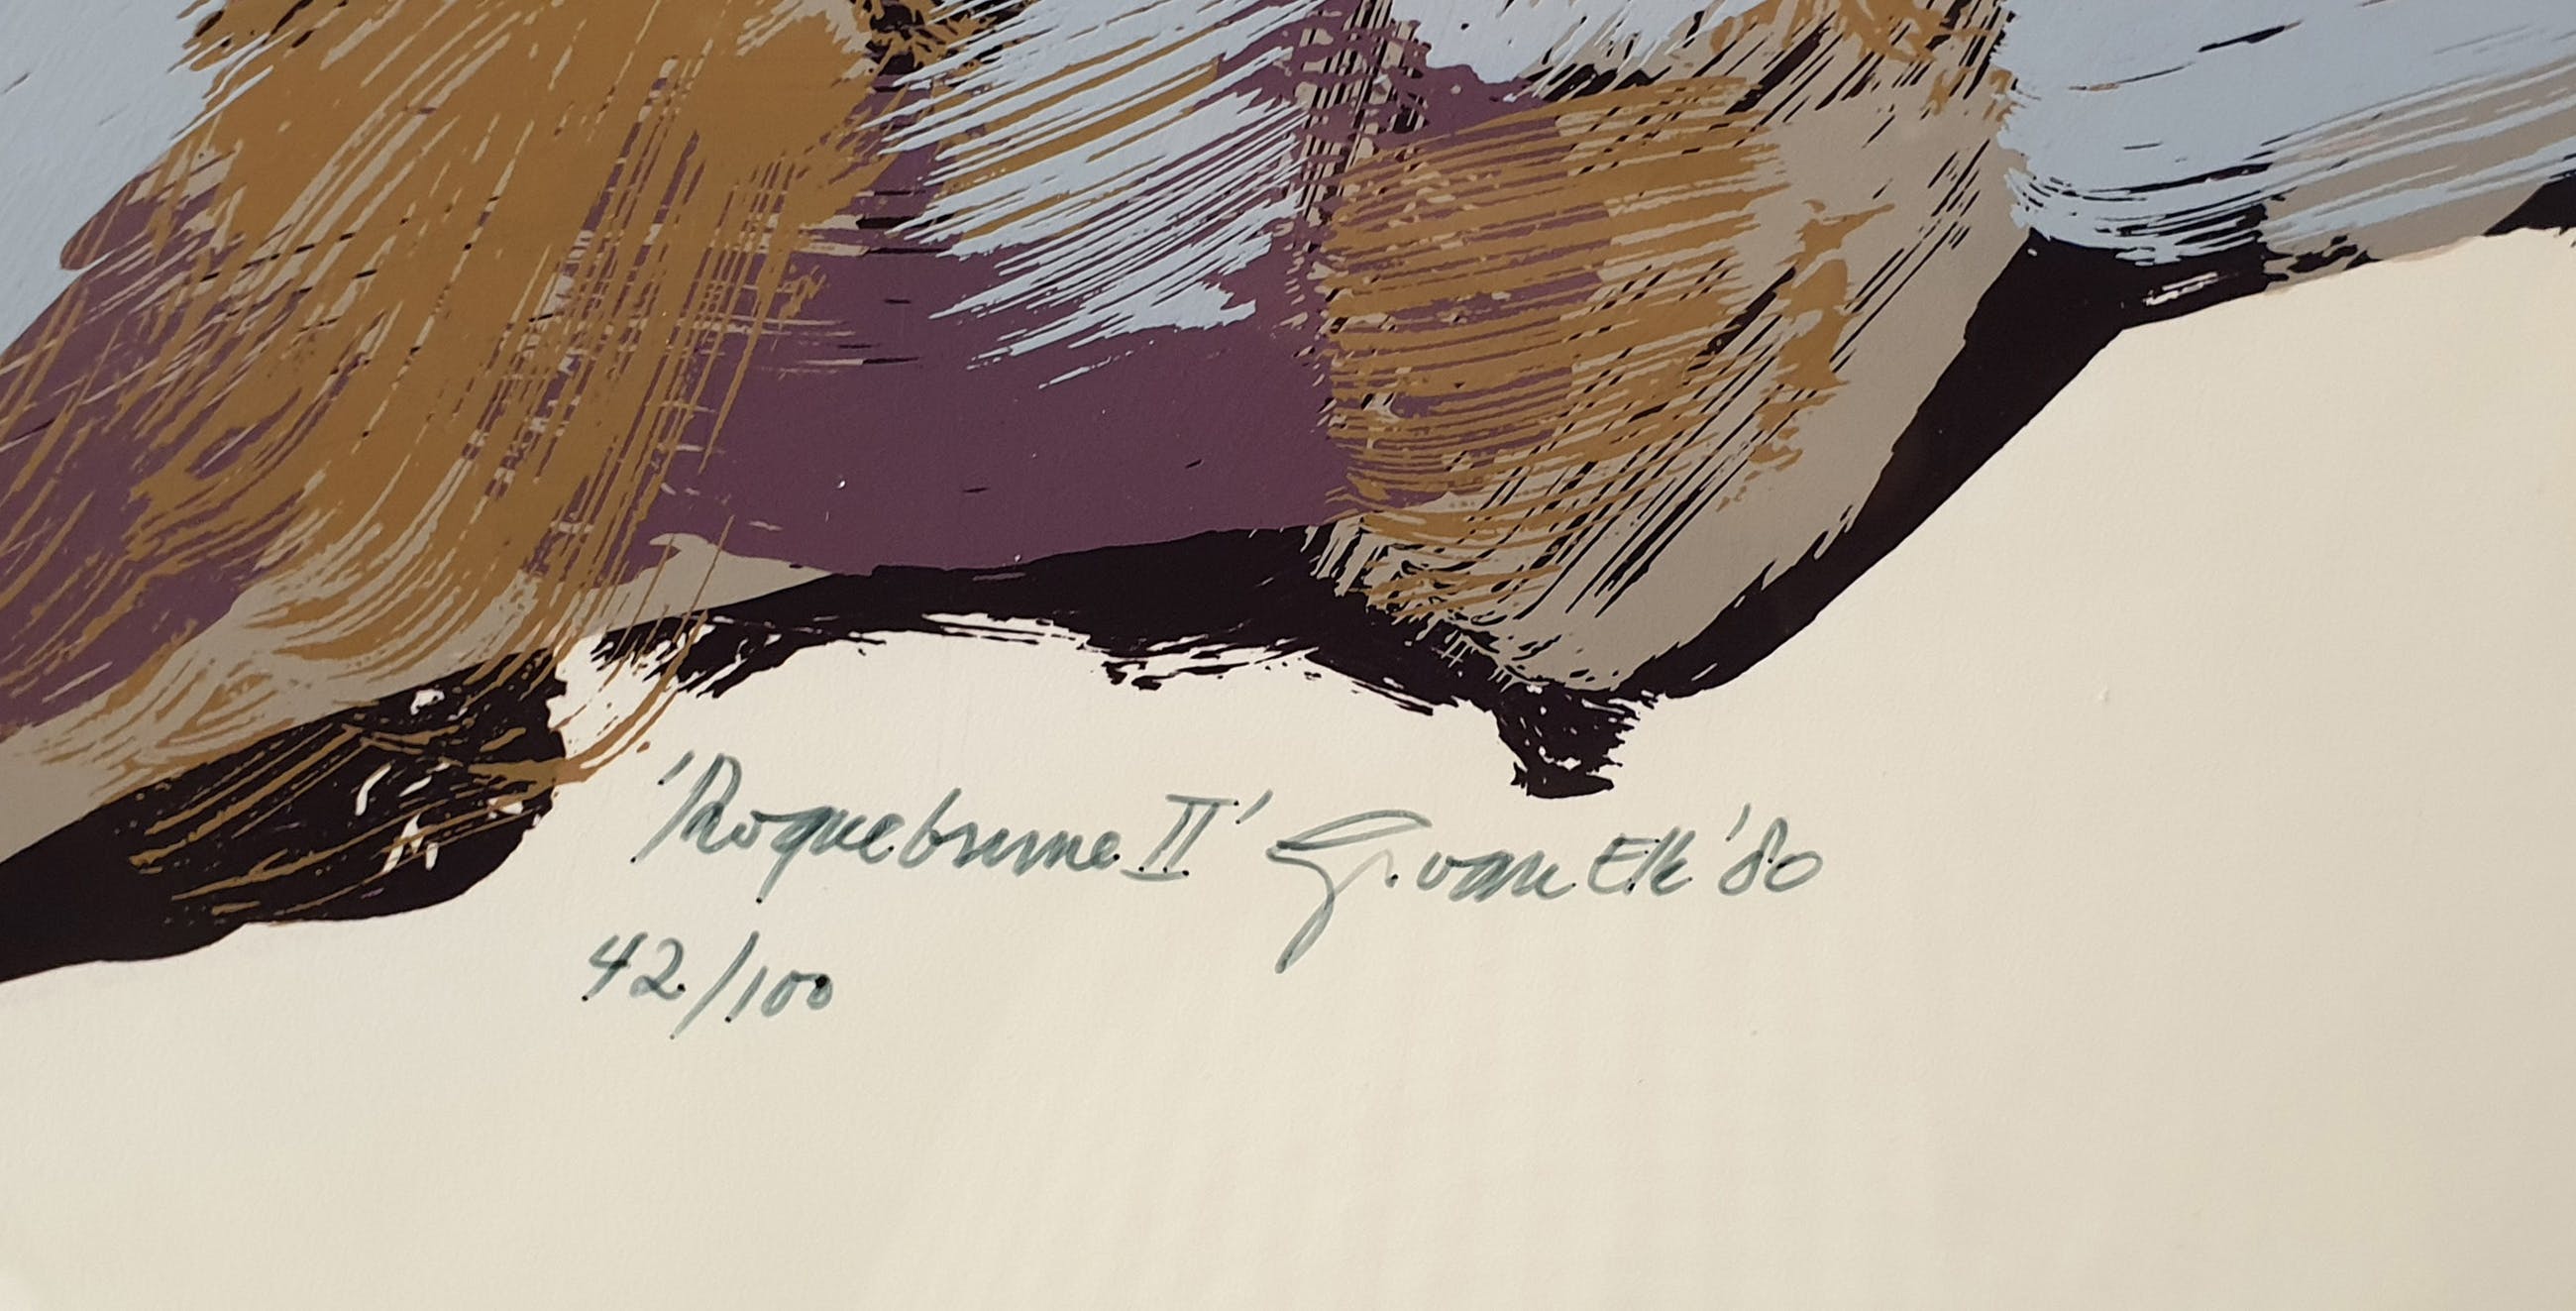 'Roquebrune II' G. van Elk '80
42/100